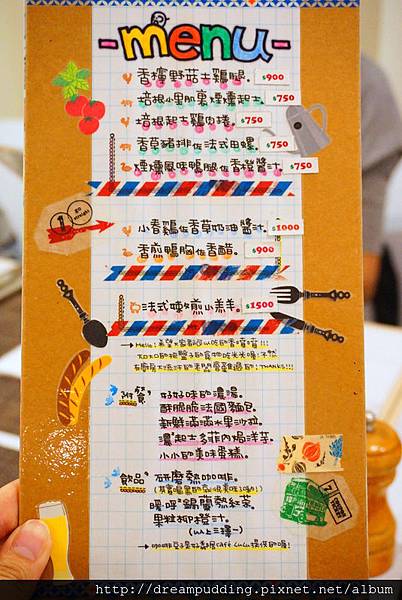 -menu-
香檸野菇土鷄腿. $900
培根小里肌裏煙燻起士. $750
培根起士鷄肉捲. $750
香草豬排佐法式田螺. $750
煙燻風味鴨腿佐香橙醬汁. $750
小春鷄佐香草奶油醬汁. $1000
香煎鴨胸佐香醋. $900
法式嫩煎小羔羊. $1500
附餐
好好味的濃湯.
酥脆脆法國麵包.
新鮮滿滿水果沙拉.
濃起士多菲內焗洋芋.
小小的美味蛋糕.
飲品
研磨熱咖啡.
暖呼呼錫蘭熱紅茶.
果粒柳橙汁.
(以上三擇一)
http://dreampudding.pixnet.net/album